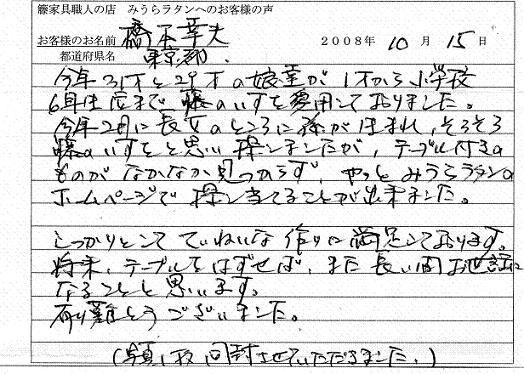 籐家具職人の店 みうらラタンへのお客様の声
お客様のお名前 橋本幸夫 2008年 10月 15日
都道府県名 東京都
今年31才と29才の娘達が1才から小学校
6年生位まで籐のいすを愛用しておりました。
今年2月に長女のところに孫が生まれ、そろそろ
籐のいすをと思い探しましたが、テーブル付きの
ものがなかなか見つからず、やっとみうらラタンの
ホームページで探し当てることが出来ました。
しっかりとしてていねいな作りに満足しております。
将来、テーブルをはずせば、また長い間お世話に
なることと思います。
有り難とうございました。
(写真1枚同封させていただきました。)